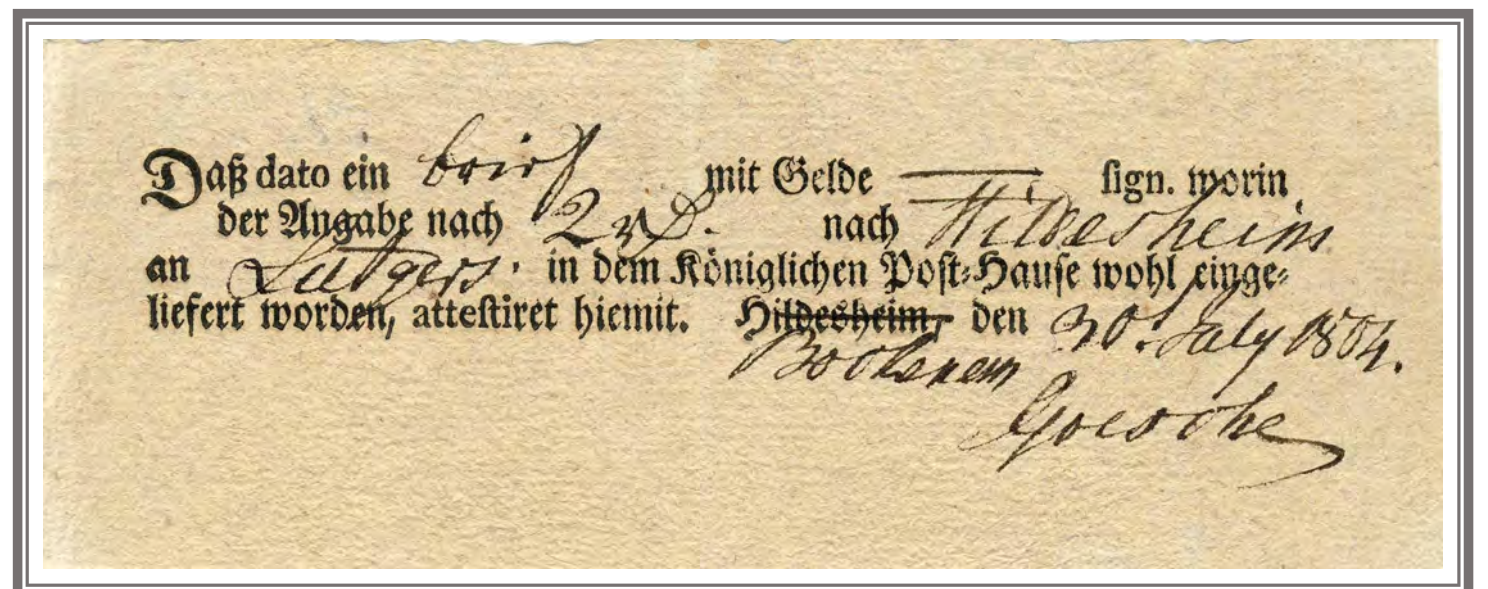 Daß dato ein brief mit Gelde —— sign. worin
der Angabe nach 2 rß. nach Hildesheim
an Lutgers. in dem Königlichen Post-Hause wohl einge-
liefert worden, attestiret hiemit. Hildesheim, den 30. July 1804.
Bockenem
Goesche